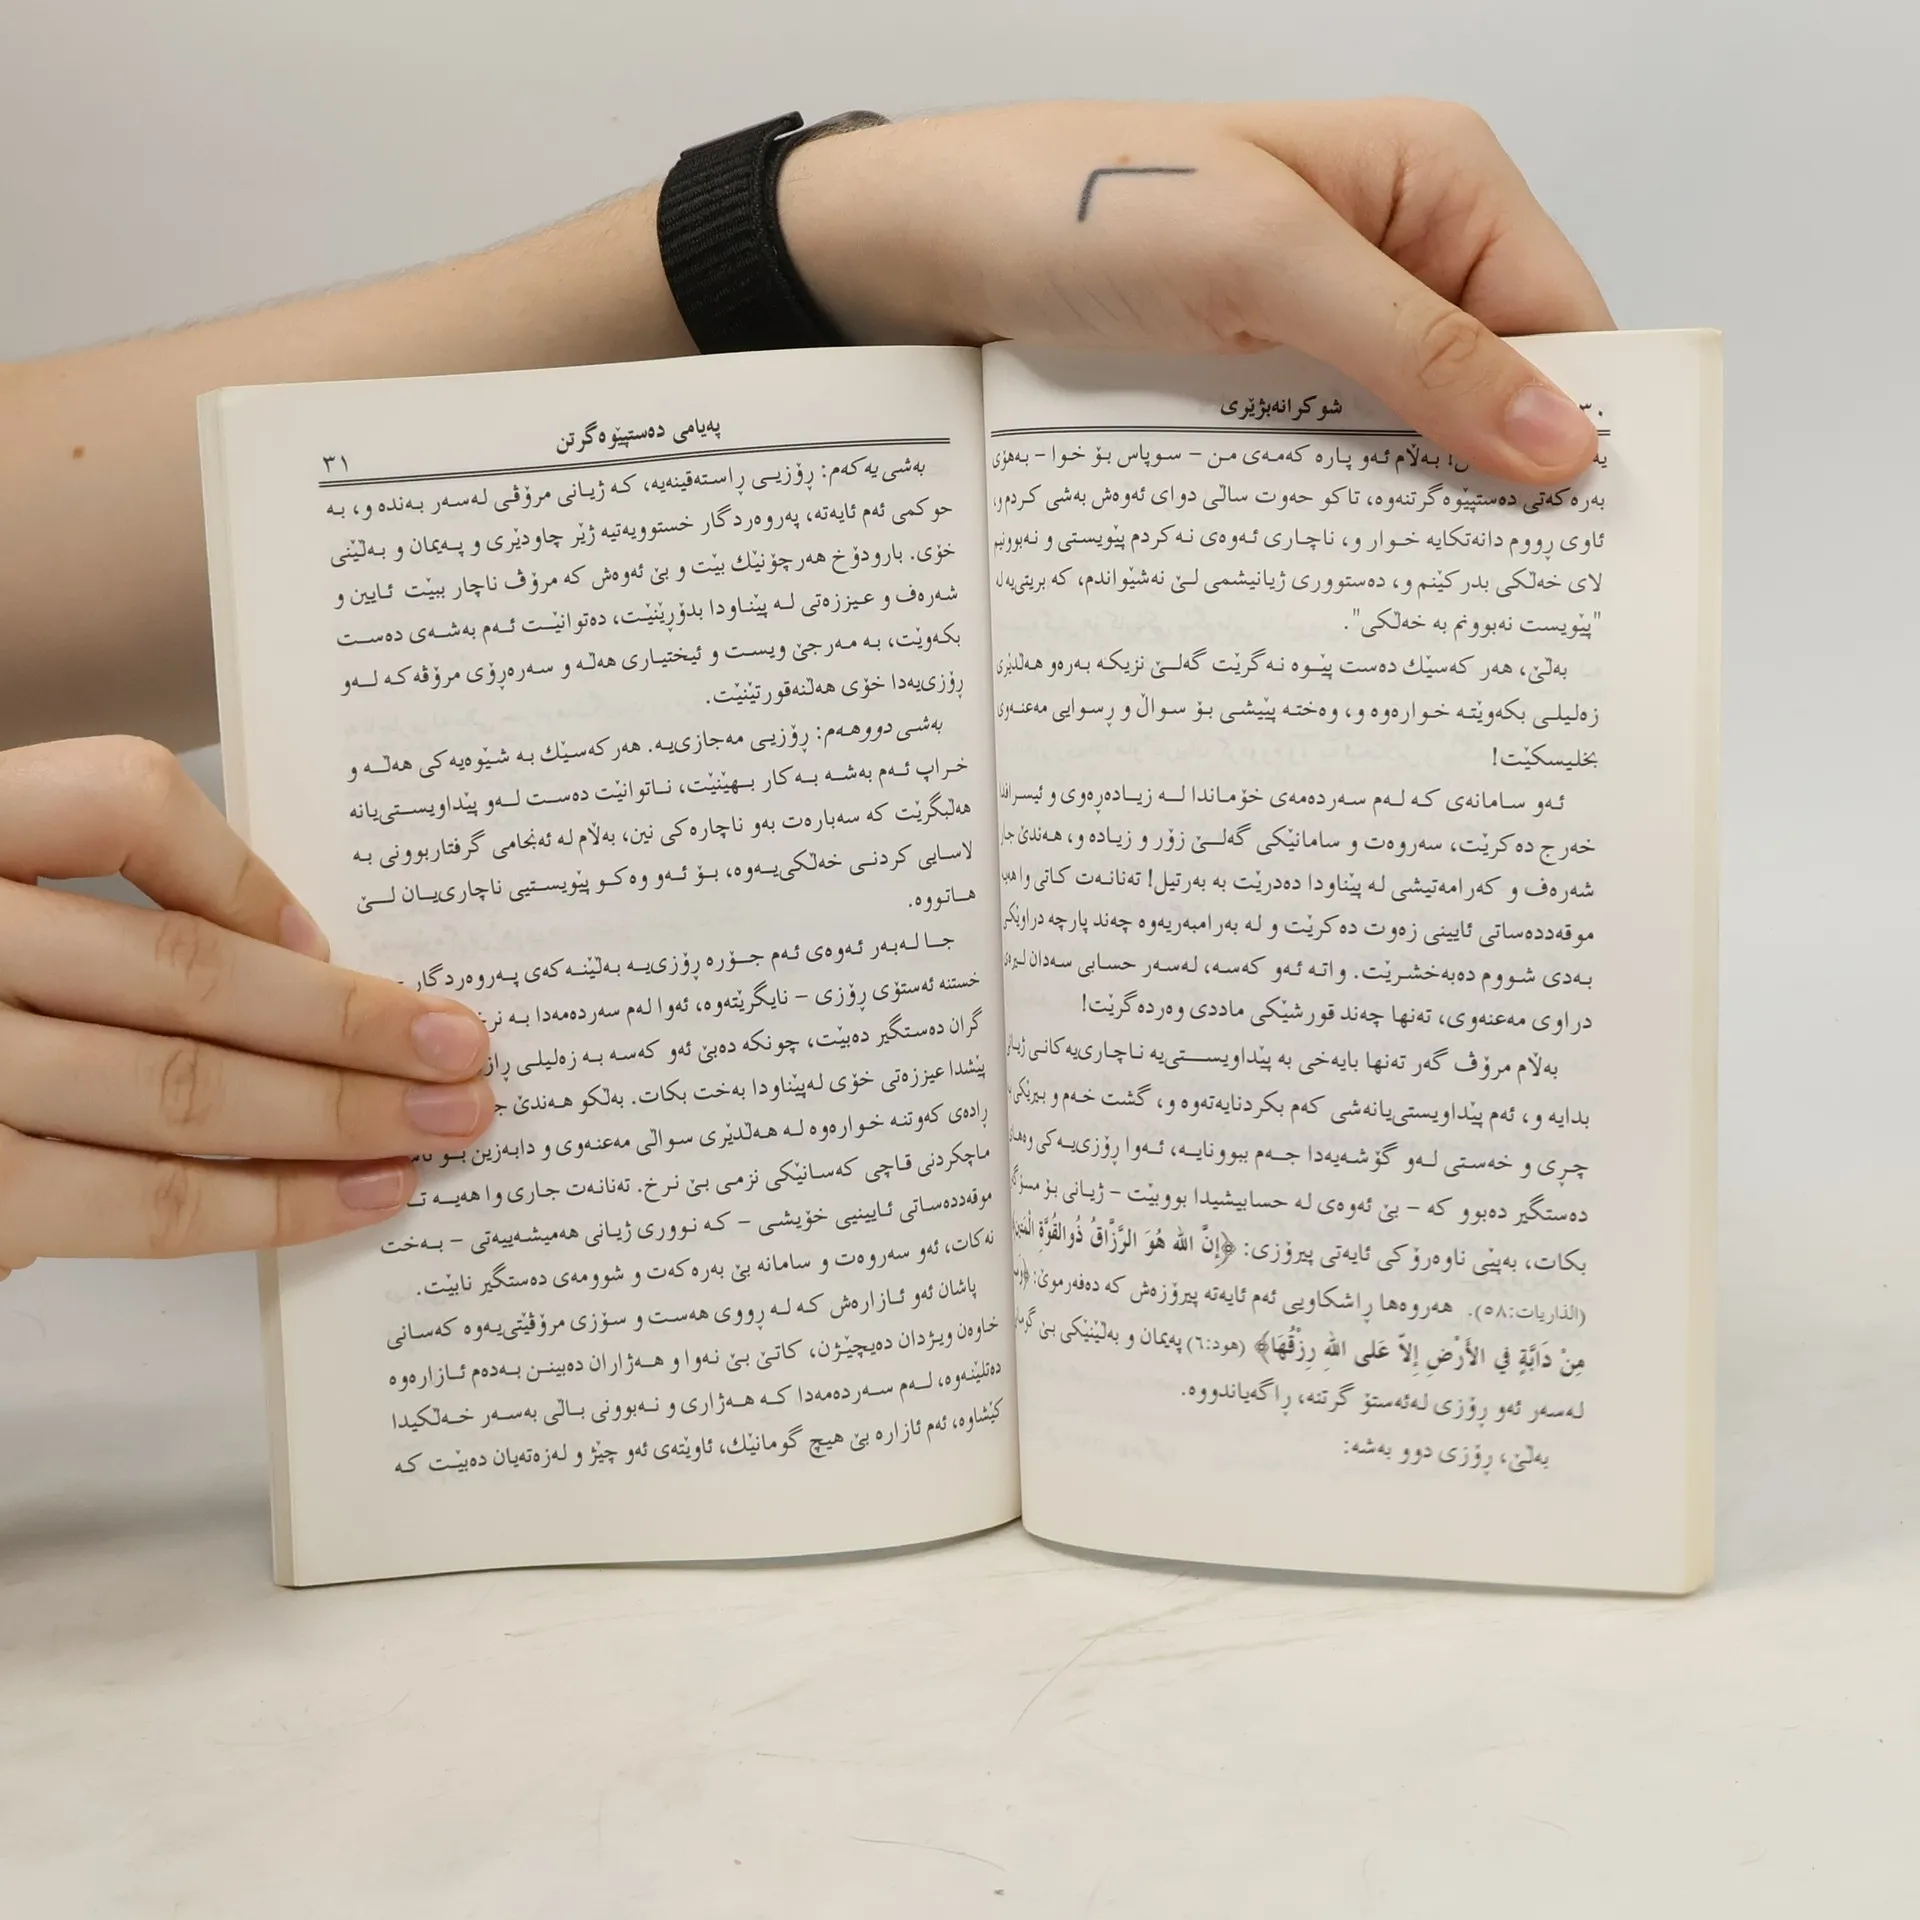 ٣٠
شوکرانەبژێری
بەڵام ئەو پارە کەمەی من – سوپاس بۆ خوا – بەهۆی
بەرەکەتی دەستپێوەگرتنەوە، تاکو حەوت ساڵی دوای ئەوەش بەشی کردم و،
ئاوی ڕووم دانەتکایە خوار و، ناچاری ئەوەی نەکردم پێویستی و نەبوونیم
لای خەڵکی بدرکێنم و، دەستووری ژیانیشمی لێ نەشێواندم، کە بریتی‌یە لە
"پێویست نەبوونم بە خەڵکی".
بەڵێ، هەر کەسێك دەست پێوە نەگرێت گەلێ نزیکە بەرەو هەڵدێری
زەلیلی بکەوێتە خوارەوە و، وەختە پێیشی بۆ سواڵ و ڕسوایی مەعنەوی
بخلیسکێت!
ئەو سامانەی کە لەم سەردەمەی خۆماندا لە زیادەڕەوی و ئیسرافدا
خەرج دەکرێت، سەروەت و سامانێکی گەلێ زۆر و زیادە و، هەندێ جار
شەرەف و کەرامەتیشی لە پێناودا دەدرێت بە بەرتیل! تەنانەت کاتی وا هەیە
موقەددەساتی ئایینی زەوت دەکرێت و لە بەرامبەریەوە چەند پارچە دراوێکی
بەدی شووم دەبەخشرێت. واتە ئەو کەسە، لەسەر حسابی سەدان لیرەی
دراوی مەعنەوی، تەنها چەند قورشێکی ماددی وەردەگرێت!
بەڵام مرۆڤ گەر تەنها بایەخی بە پێداویستی‌یە ناچاری‌یەکانی ژیانی
بدایە و، ئەم پێداویستی‌یانەشی کەم بکردنایەتەوە و، گشت خەم و بیرێکی
چڕی و خەستی لەو گۆشەیەدا جەم ببوونایە، ئەوا ڕۆزی‌یەکی وەهای
دەستگیر دەبوو کە – بێ ئەوەی لە حسابیشیدا بووبێت – ژیانی بۆ مسۆگەر
بکات، بەپێی ناوەرۆکی ئایەتی پیرۆزی: ﴿إِنَّ اللهَ هُوَ الرَّزَّاقُ ذُوالقُوَّةِ الْمَتِينُ﴾
(الذاریات:٥٨). هەروەها ڕاشکاویی ئەم ئایەتە پیرۆزەش کە دەفەرموێ:
مِنْ دَابَّةٍ فِي الأَرْضِ إِلاَّ عَلَى اللهِ رِزْقُهَا﴾ (هود:٦) پەیمان و بەڵێنێکی بێ
لەسەر ئەو ڕۆزی لەئەستۆ گرتنە، ڕاگەیاندووە.
بەڵێ، ڕۆزی دوو بەشە:
پەیامی دەستپێوەگرتن
٣١
بەشی یەکەم: ڕۆزیی ڕاستەقینەیە، کە ژیانی مرۆڤی لەسەر بەندە و، بە
حوکمی ئەم ئایەتە، پەروەردگار خستوویەتیە ژێر چاودێری و پەیمان و بەڵێنی
خۆی. بارودۆخ هەرچۆنێك بێت و بێ ئەوەش کە مرۆڤ ناچار ببێت ئایین و
شەرەف و عیززەتی لە پێناودا بدۆڕێنێت، دەتوانێت ئەم بەشەی دەست
بکەوێت، بە مەرجێ ویست و ئیختیاری هەڵە و سەرەڕۆی مرۆڤەکە لەو
ڕۆزی‌یەدا خۆی هەڵنەقورتێنێت.
بەشی دووهەم: ڕۆزیی مەجازی‌یە. هەر کەسێك بە شێوەیەکی هەڵە و
خراپ ئەم بەشە بەکار بهێنێت، ناتوانێت دەست لەو پێداویستی‌یانە
هەڵبگرێت کە سەبارەت بەو ناچارەکی نین، بەڵام لە ئەنجامی گرفتاربوونی بە
لاسایی کردنی خەڵکی‌یەوە، بۆ ئەو وەکو پێویستیی ناچاری‌یان لێ
هاتووە.
جا لەبەر ئەوەی ئەم جۆرە ڕۆزی‌یە بەڵێنەکەی پەروەردگار
خستنە ئەستۆی ڕۆزی – نایگرێتەوە، ئەوا لەم سەردەمەدا بە
گران دەستگیر دەبێت، چونکە دەبێ ئەو کەسە بە زەلیلی
پێشدا عیززەتی خۆی لەپێناودا بەخت بکات. بەڵکو هەندێ
ڕادەی کەوتنە خوارەوە لە هەڵدێری سواڵی مەعنەوی و دابەزین بۆ
ماچکردنی قاچی کەسانێکی نزمی بێ نرخ. تەنانەت جاری وا هەیە
موقەددەساتی ئایینیی خۆیشی – کە نووری ژیانی هەمیشەییەتی – بەخت
نەکات، ئەو سەروەت و سامانە بێ بەرەکەت و شوومەی دەستگیر نابێت.
پاشان ئەو ئازارەش کە لە ڕووی هەست و سۆزی مرۆڤێتی‌یەوە کەسانی
خاوەن ویژدان دەیچێژن، کاتێ بێ نەوا و هەژاران دەبینن بەدەم ئازارەوە
دەتلێنەوە، لەم سەردەمەدا کە هەژاری و نەبوونی باڵی بەسەر خەڵکیدا
کێشاوە، ئەم ئازارە بێ هیچ گومانێك، ئاوێتەی ئەو چێژ و لەزەتەیان دەبێت کە